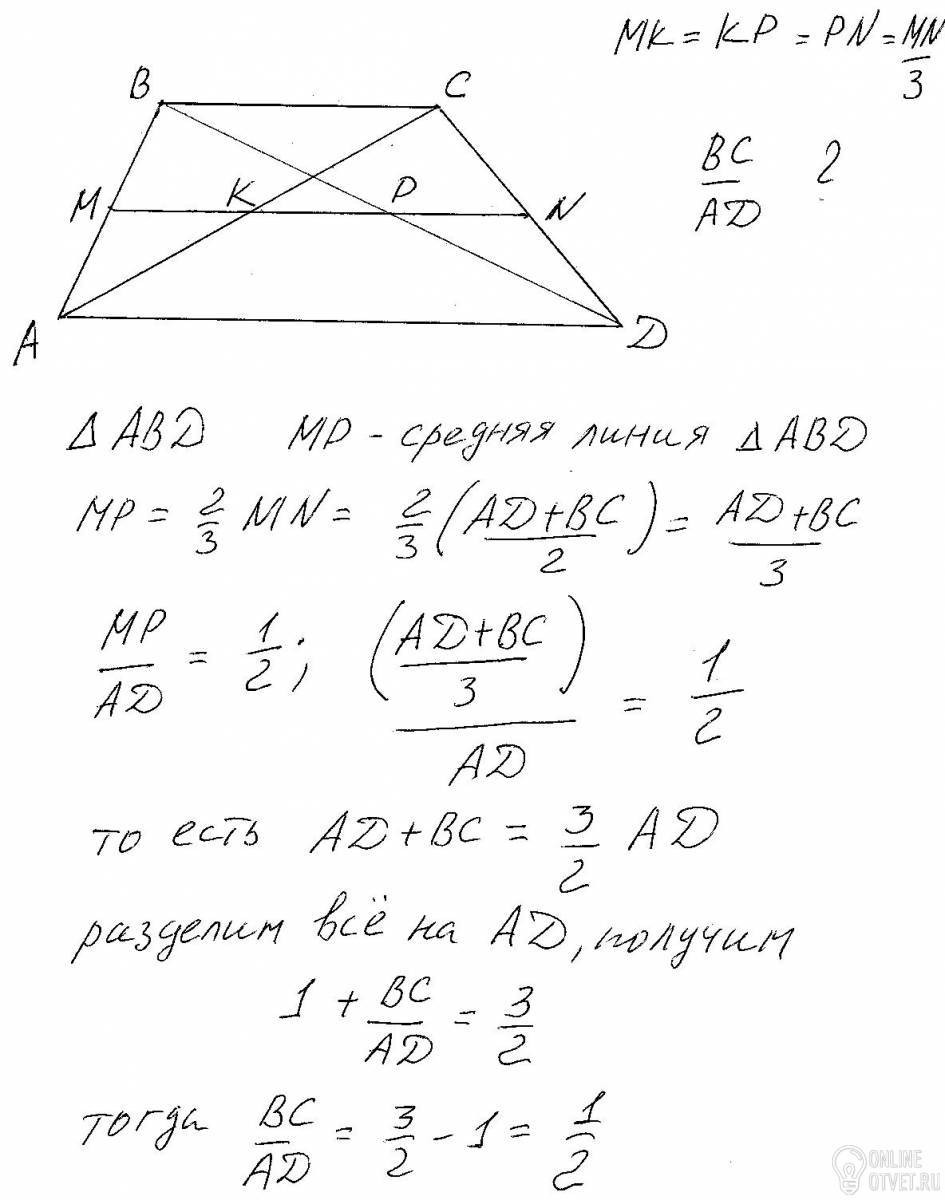 MK = KP = PN = MN/3
B C
BC/AD ?
M K P N
A D
Δ ABD MP - средняя линия Δ ABD
MP = 2/3 MN = 2/3 (AD+BC/2) = AD+BC/3
MP/AD = 1/2; (AD+BC/3)/AD = 1/2
то есть AD+BC = 3/2 AD
разделим всё на AD, получим
1 + BC/AD = 3/2
тогда BC/AD = 3/2 - 1 = 1/2
ONLINE
OTVET.RU